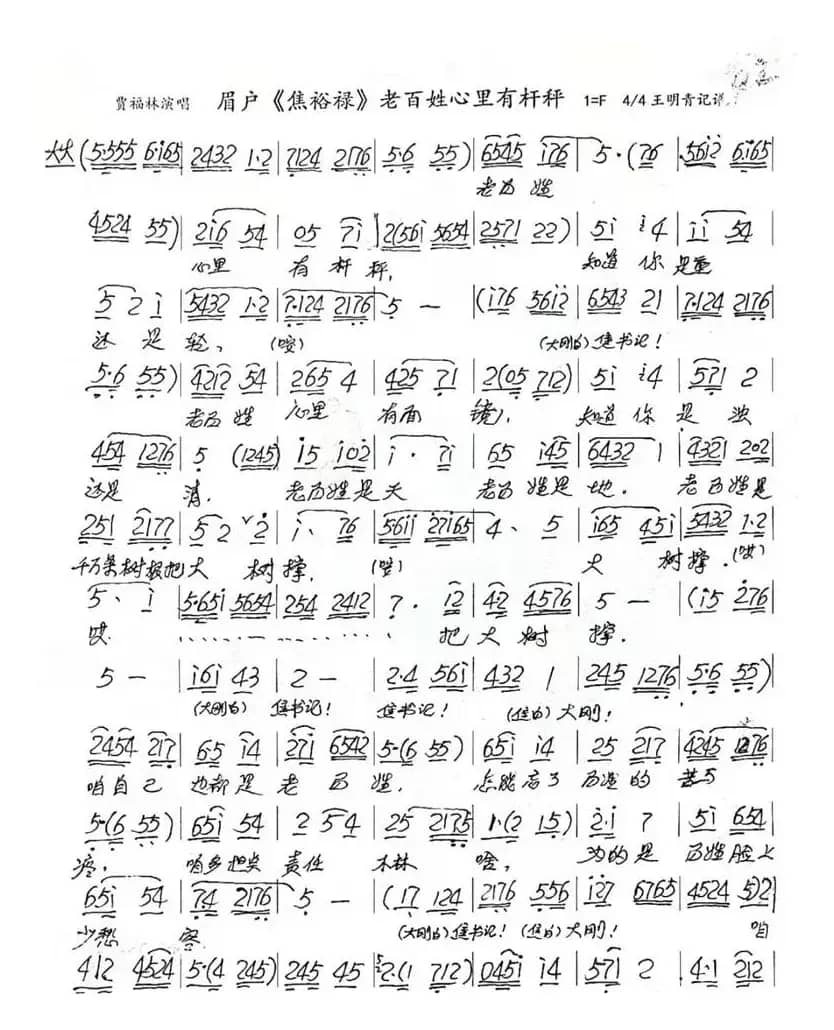 贾福林演唱 眉户《焦裕禄》老百姓心里有杆秤 1=F 4/4 王明青记谱
大大 (5·555 6·i65 | 2432 1·2 | 7124 2176 | 5·6 55) | 6545 i76 | 5·(76 | 5612 6·i65
老百姓
4524 55) | 2i6 54 | 05 7i | 2(56i 5654 | 2571 22) | 5i i4 | ii 54
心里 有杆秤, 知道你是重
5 2 i | 5432 1·2 | 7·124 2176 | 5 — | (i76 56i2 | 6543 21 | 7·124 2176
还是轻, (哎) (大刚白)焦书记!
5·6 55) | 4212 54 | 265 4 | 425 71 | 2(05 712) | 5i i4 | 571 2
老百姓 心里 有面 镜, 知道你是浊
454 1276 | 5 (1245) | i5 i02 | i· 7i | 65 i45 | 6432 1 | 4321 202
还是 清. 老百姓是天 老百姓是地. 老百姓是
251 2177 | 5 2 ˅ 2 | i、 76 | 56ii 27i65 | 4、 5 | i65 45i | 5432 1·2
千万条树根把大 树撑, (哎) 大 树撑.(哎)
5、 i | 5·65i 5654 | 254 2412 | 7· 12 | 42 4576 | 5 — | (i5 276
哎 把大树 撑.
5 — | i6i 43 | 2 — | 2·4 56i | 432 1 | 245 1276 | 5·6 55)
(大刚白) 焦书记! 焦书记! (焦白)大刚!
2454 217 | 65 i4 | 27i 6542 | 5·(6 55) | 65i i4 | 25 217 | 4245 1276
咱自己 也都是老百姓, 怎能忘了百姓的苦与
5·(6 55) | 65i 54 | 2 54 | 25 2175 | 1·(2 15) | 2·i 7 | 5i 654
疼, 咱多担些 责任 啥, 为的是 百姓脸上
65i 54 | 74 2176 | 5 — | (17 124 | 2176 556 | i27 6765 | 4524 5)2
少愁 容 (大刚白)焦书记! (焦白)大刚! 咱
412 4524 | 5·(4 245) | 245 45 | 2·(1 712) | 045i i4 | 571 2 | 4·1 212